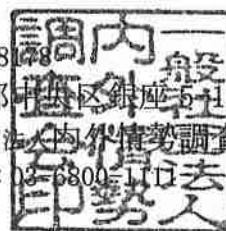 8178
都中央区銀座 5-1
法人内外情勢調査
: 03-6800-1111
一般社団法人
内外情勢
調査会印